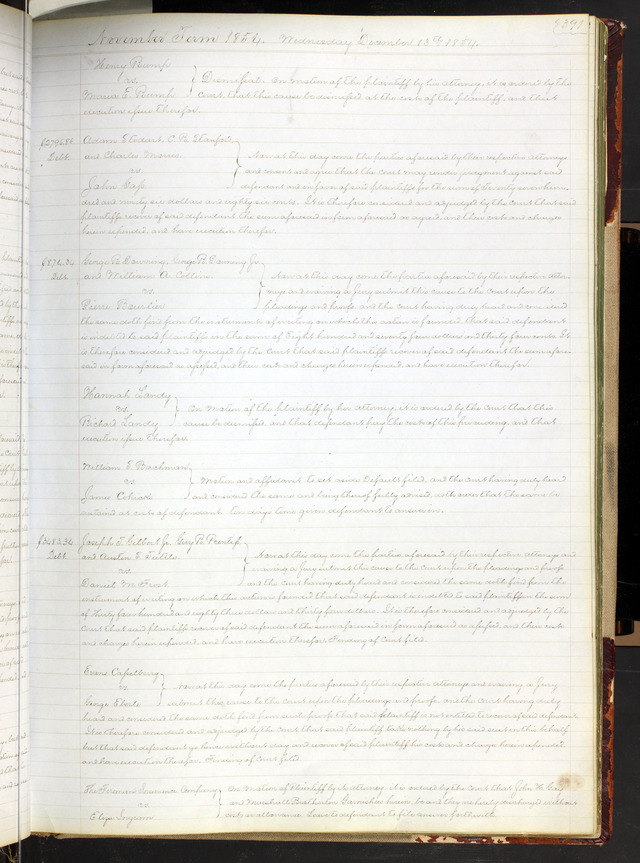 November Term 1854. Wednesday December 13th 1854. 391
Henry Rump
vs. Dismissal. On motion of the plaintiff by his attorney, it is ordered by the
Maria E. Rump Court, that this cause be dismissed at the costs of the plaintiff, and that
execution issue therefor.
$2796.86 Adam Stewart, C. B.
Debt. and Charles Morris Now at this day come the parties aforesaid by their respective attorneys
vs. and consent and agree that the Court may render judgment against said
John Cass defendant and in favor of said plaintiffs for the sum of Twenty seven hun-
dred and ninety six dollars and eighty six cents. It is therefore considered and adjudged by the Court that said
plaintiffs recover of said defendant the sum aforesaid in form aforesaid as agreed, and their costs and charges
herein expended, and have execution therefor.
$874.34 George B. Downing, George B. Downing Jr.
Debt and William A. Collins Now at this day come the parties aforesaid by their respective attor-
vs. neys and waiving a Jury submit this cause to the Court upon the
Pierre pleadings and proofs, and the Court having duly heard and considered
the same doth find from the instruments of writing on which this action is founded, that said defendant
is indebted to said plaintiffs in the sum of Eight hundred and seventy four dollars and thirty four cents. It
is therefore considered and adjudged by the Court that said plaintiffs recover of said defendant the sum afore-
said in form aforesaid as specified, and their costs and charges herein expended, and have execution therefor.
Hannah Landy
vs. On motion of the plaintiff by her attorney, it is ordered by the Court that this
Richard Landy cause be dismissed, and that defendant pay the costs of this proceeding, and that
execution issue therefor.
William E. Bachman
vs. Motion and affidavit to set aside Default filed, and the Court having duly heard
James and considered the same and being thereof fully advised, doth order that the same be
sustained at costs of defendant. ten days time given defendant to answer in.
$3483.34 Joseph T. Gilbert Jr, Guy R.
Debt. and Austin T. Tuttle Now at this day come the parties aforesaid by their respective attorneys and
vs. waiving a Jury submit this cause to the Court upon the pleadings and proofs
Daniel M. Frost and the Court having duly heard and considered the same doth find from the
instrument of writing on which this action is founded that said defendant is indebted to said plaintiffs in the sum
of Thirty four hundred and eighty three dollars and thirty four dollars. It is therefore considered and adjudged by the
Court that said plaintiffs recover of said defendant the sum aforesaid in form aforesaid as specified, and their costs
and charges herein expended, and have execution therefor. Finding of Court filed.
Evans
vs Now at this day come the parties aforesaid by their respective attorneys and waiving a Jury
George Eberle submit this cause to the Court upon the pleadings and proofs, and the Court having duly
heard and considered the same doth find from such proofs that said plaintiff is not entitled to recover of said defendant
It is therefore considered and adjudged by the Court that said plaintiff take nothing by his said suit in this behalf
but that said defendant go hence without day and recover of said plaintiff his costs and charges herein expended
and have execution therefor. Finding of Court filed.
The Firemens Insurance Company On motion of Plaintiff by its attorney, it is ordered by the Court that John H. Gay
vs and Marshall Brotherton Garnishees herein be and they are hereby discharged without
Eliza Ingram costs or allowance. Leave to defendant to file answer forthwith.